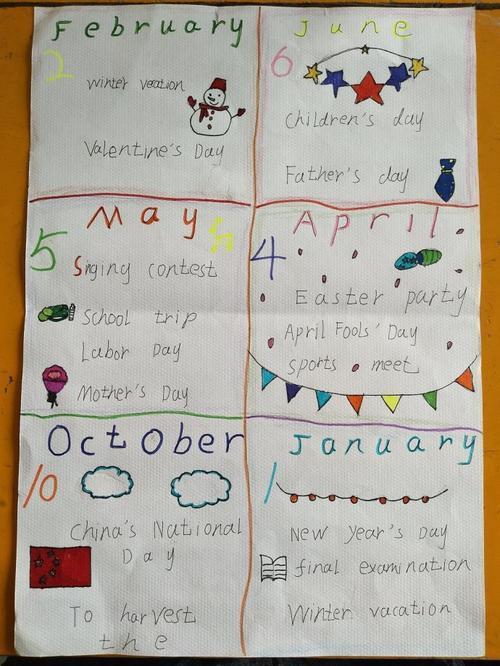 February
2
winter veation
Valentine's Day
June
6
Children's day
Father's day
May
5
Singing contest
School trip
Labor Day
Mother's Day
April
4
Easter party
April Fools' Day
sports meet
October
10
China's National
Day
To harvest
the
January
1
New Year's Day
final examination
Winter vacation